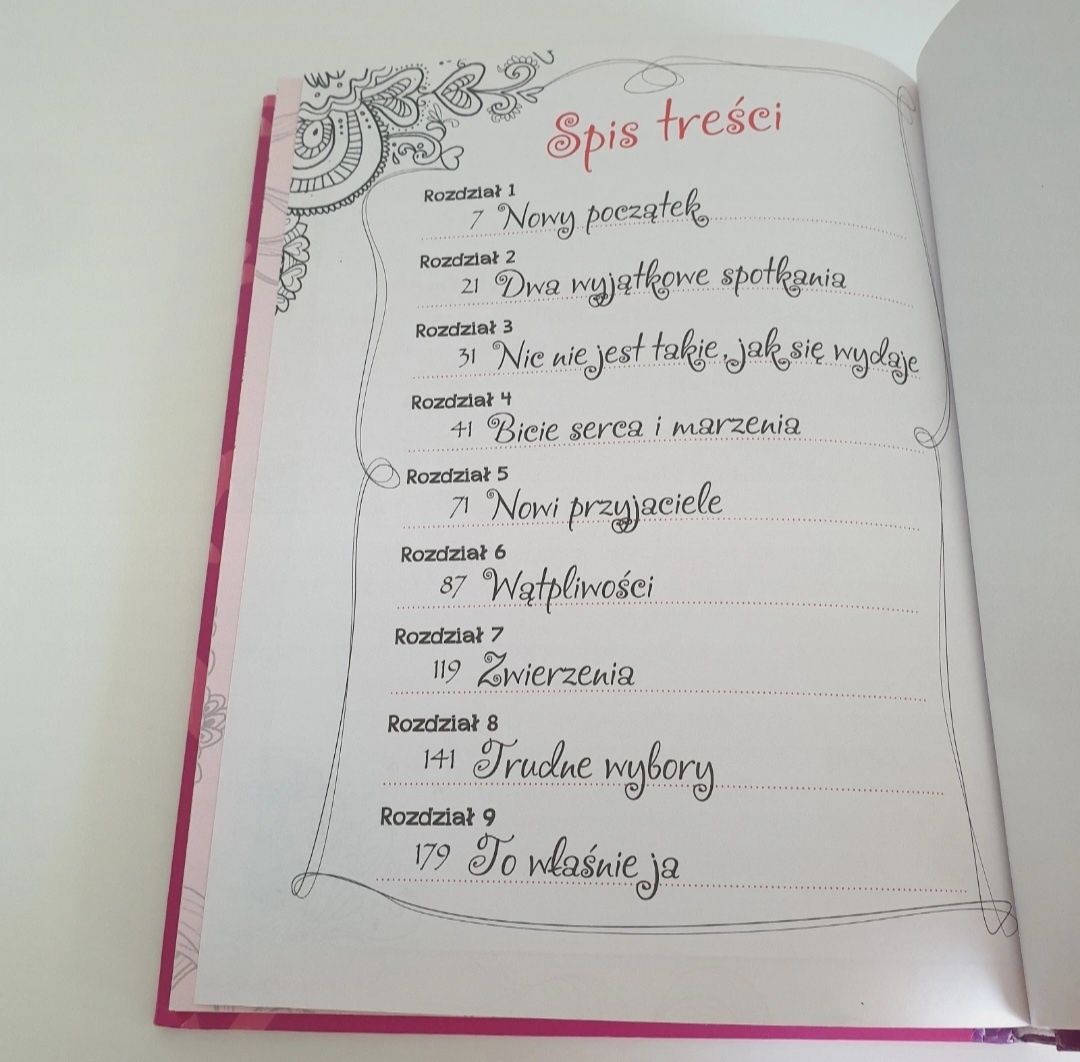 Spis treści
Rozdział 1
7 Nowy początek
Rozdział 2
21 Dwa wyjątkowe spotkania
Rozdział 3
31 Nic nie jest takie, jak się wydaje
Rozdział 4
41 Bicie serca i marzenia
Rozdział 5
71 Nowi przyjaciele
Rozdział 6
87 Wątpliwości
Rozdział 7
119 Zwierzenia
Rozdział 8
141 Trudne wybory
Rozdział 9
179 To właśnie ja